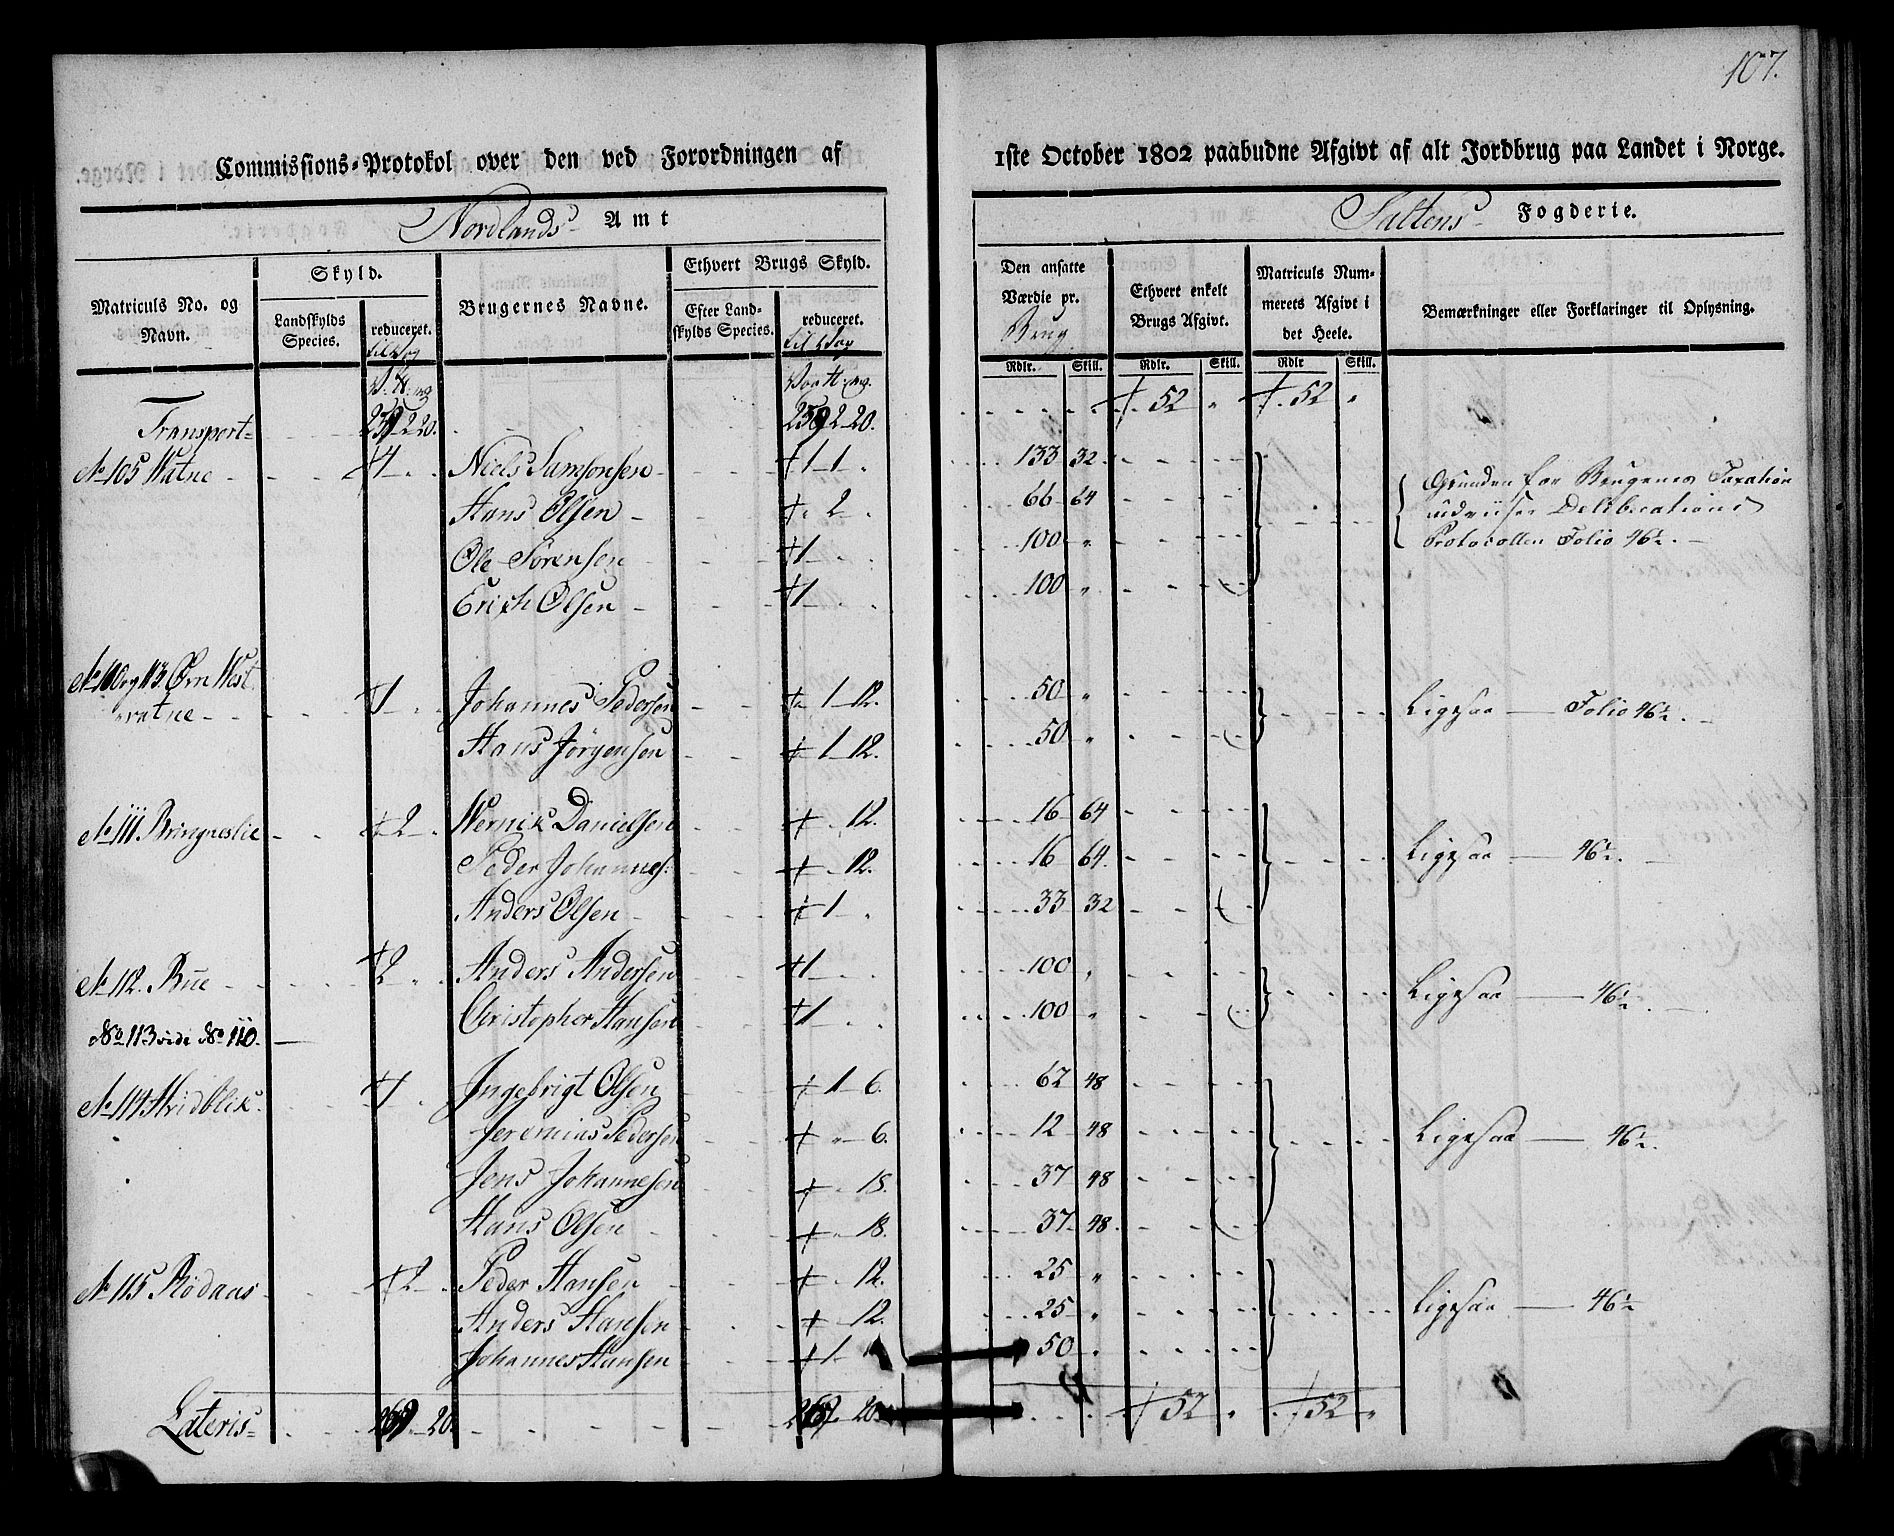 107.
Commissions-Protokol over den ved Forordningen af 1ste October 1802 paabudne Afgivt af alt Jordbrug paa Landet i Norge.
Nordlands Amt
Saltens Fogderie.
Matriculs No. og Navn.
Skyld.
Landskylds Species.
reduceret.
Brugernes Navne.
Ethvert Brugs Skyld.
Efter Landskylds Species.
reduceret.
Den ansatte Værdie pr. Brug
Ethvert enkelt Brugs Afgivt.
Matriculs Nummerets Afgivt i det Heele.
Bemærkninger eller Forklaringer til Oplysning.
Rdlr. Skill. Rdlr. Skill. Rdlr Skill.
Transport 2 20. 2 20. 52 " 52 "
No 105 Watne 4 Niels Samsonsen 1 1 133 32 Grunden for Brugenes Taxation
Hans Olsen 2 66 64 udviiser Deliberations
Ole Sørensen 1 100 " Protocollen Folio 46½.
Erich Olsen 1 100 "
No 110 og 113 Örn West
vatne 1 Johannes Pedersen 1 12. 50 " Ligesaa Folio 46½.
Hans Jörgensen 1 12. 50 "
No 111. Bringneslie 2 Wernik Danielsen 12. 16 64 Ligesaa 46½.
Peder Johannes: 12. 16 64.
Anders Olsen 1 33 32
No 112. Bue 2 Anders Andersen 1 100 " Ligesaa 46½.
Christopher Hansen 1 100 "
No 113 vide No 110.
No 114 Hvidblik 1 Ingebrigt Olsen 1 6. 62 48
Jeremias Pedersen " 6. 12 48 Ligesaa 46½.
Jens Johannesen 18. 37 48
Hans Olsen 18. 37 48.
No 115 Rödaas 2 Peder Hansen 12. 25 "
Anders Hansen 12. 25 " Ligesaa 46½
Johannes Hansen 1 50 "
Lateris 20. 20. 52 " 52 "